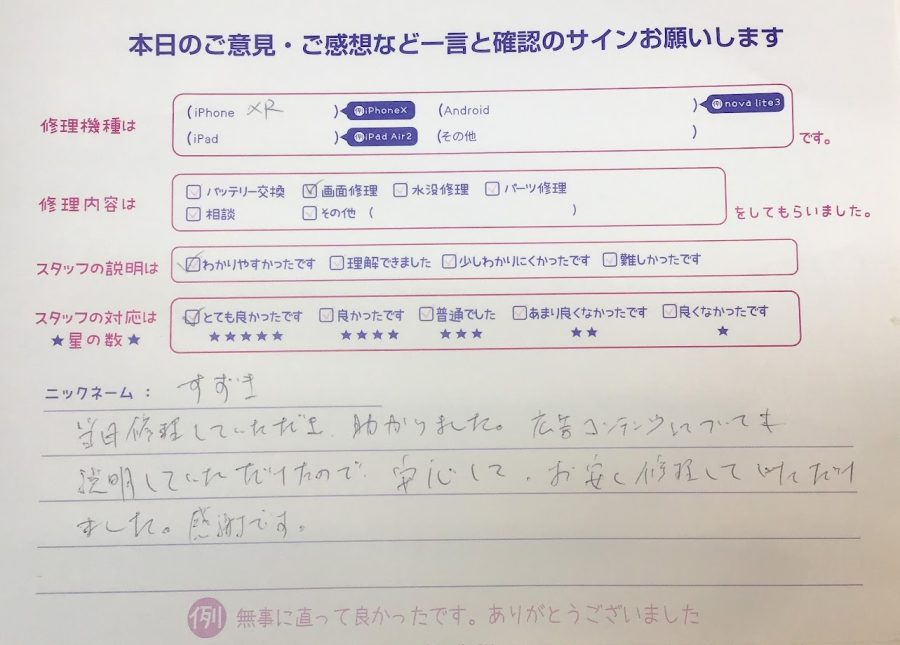 本日のご意見・ご感想など一言と確認のサインお願いします
修理機種は
(iPhone XR ) 例iPhoneX (Android ) 例nova lite3
(iPad ) 例iPad Air2 (その他 ) です。
修理内容は
バッテリー交換 画面修理 水没修理 パーツ修理
相談 その他 ( ) をしてもらいました。
スタッフの説明は わかりやすかったです 理解できました 少しわかりにくかったです 難しかったです
スタッフの対応は とても良かったです 良かったです 普通でした あまり良くなかったです 良くなかったです
★星の数★ ★★★★★ ★★★★ ★★★ ★★ ★
ニックネーム： すずき
当日修理していただき、助かりました。広告コンテンツについても
説明していただけたので、安心して、お安く修理していただけ
ました。感謝です。
例 無事に直って良かったです。ありがとうございました